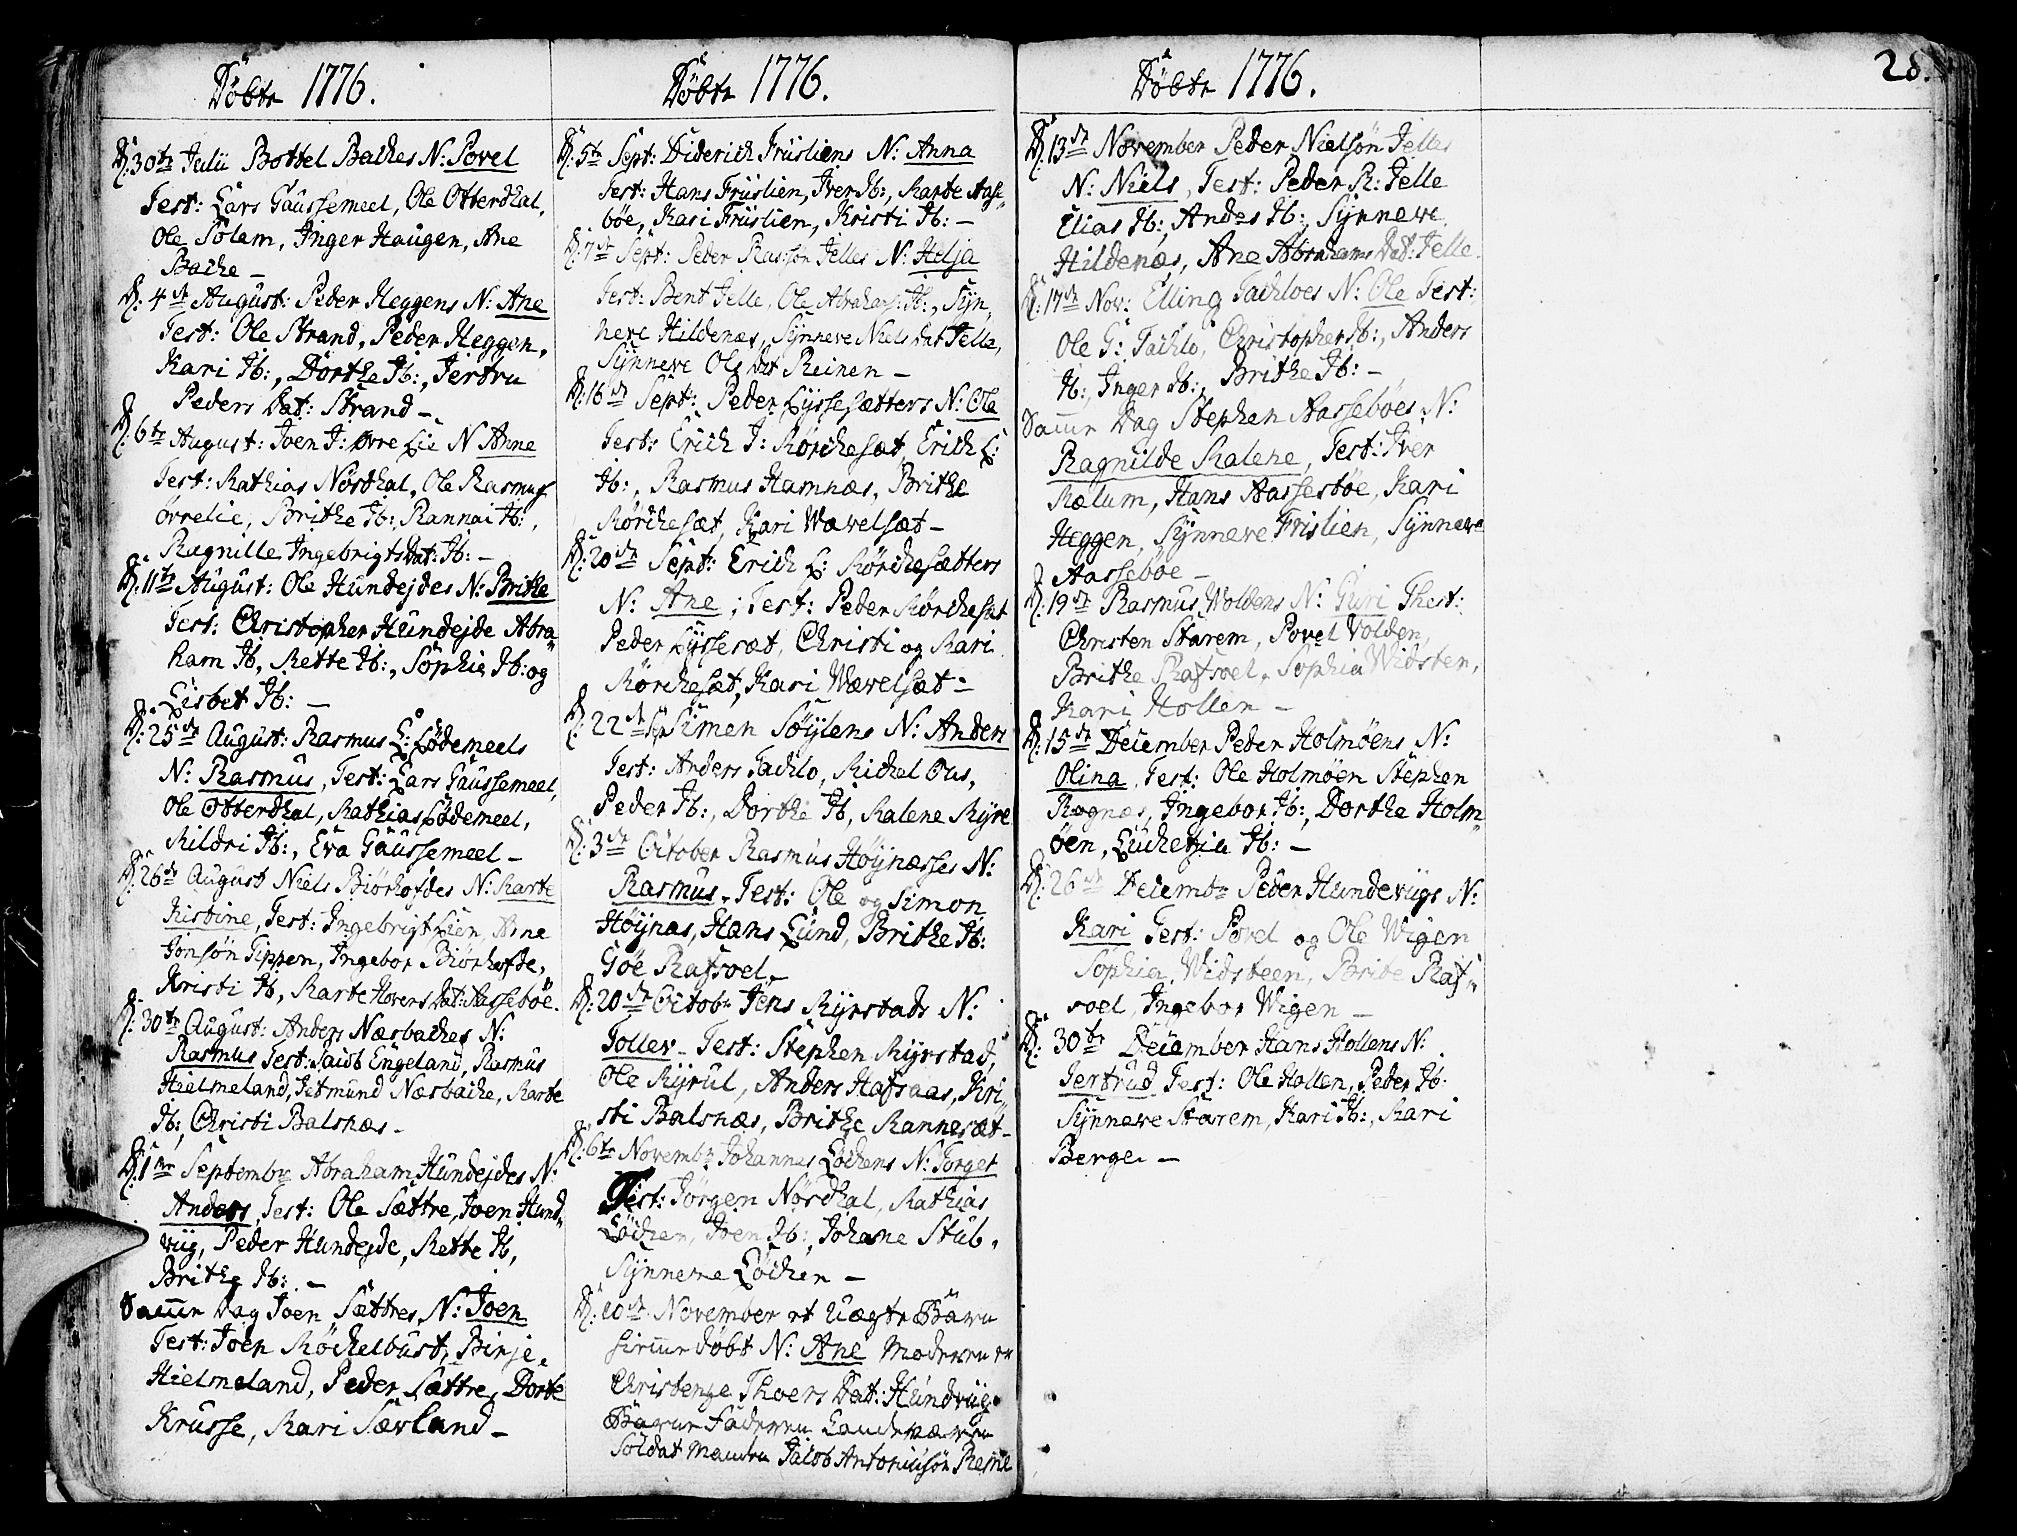 Döbte 1776.
D: 30te Julii Bottel Backes N: Povel
Test: Lars Gaussemeel, Ole Otterdhal,
Ole Solem, Inger Haugen, Ane
Backe —
D: 4de August: Peder Heggens N: Ane
Test: Ole Strand, Peder Heggen,
Kari Ib:, Dorthe Ib:, Jertru
Peders Dat: Strand —
D: 6te August: Joen J: Øvre Lie N Anne
Test: Mathias Nordhal, Ole Rasmus
øvrelie, Brithe Ib: Rannai Ib:,
Ragnille Ingebrigts Dat: Ib: —
D: 11te August: Ole Hundejdes N: Brithe
Test: Christopher Hundejde Abra„
ham Ib, Mette Ib:, Sophia Ib: og
Lisbet Ib: —
D: 25de August: Rasmus L: Lödemeels
N: Rasmus, Test: Lars Gaussemeel,
Ole Otterdhal, Mathias Lödemeel,
Mildri Ib:, Eva Gaussemeel —
D: 26de August Niels Biørhofdes N: Marte
Kistine, Test: Ingebrigt Lien, Arne
Jonsön Tippen, Ingebor Biørhofde,
Kristi Ib, Marte Hovers Dat: Aasseböe.
D: 30te August: Anders Næsbackes N:
Rasmus Test: Jacob Engeland, Rasmus
Hielmeland, Jetmund Næsbacke, Marte
Ib:, Christi Balsnæs —
D: 1ste Septembr Abraham Hundejdes N:
Anders, Test: Ole Sættre, Joen Hund„
viig, Peder Hundejde, Mette Ib,
Brithe Ib: —
Samme Dag Joen Sættres, N: Joen
Test: Joen Röckelbust, Birje
Hielmeland, Peder Sættre, Dorte
Krusse, Kari Sævland —
Döbte 1776.
D: 5te Sept: Diderich Früsliens N: Anna
Test: Hans Früslien, Iver Ib:, Marte Aasse„
böe, Kari Früslien, Kristi Ib: —
D: 7de Sept: Peder Ras:sön Jelles N: Helja
Test: Bent Jelle, Ole Abrahams: Ib:, Syn„
neve Hildenæs, Synneve Niels dat Jelle,
Synneve Ols dat Reinen —
D: 16de Sept: Peder Lyssesætters N: Ole
Test: Erich J: Mörchesæt, Erich L:
Ib:, Rasmus Hamnæs, Brithe
Mörchesæt, Kari Wævelsæt —
D: 20de Sept: Erich L: Mörchesætters
N: Ane; Test: Peder Mörchesæt
Peder Lyssesæt, Christi og Mari
Mörchesæt, Kari Wævelsæt —
D: 22de Simen Söylens N: Anders
Test: Anders Tacklo, Michel Ous,
Peder Ib:, Dorthe Ib, Malene Myre
D: 3de October Rasmus Höynæsses N:
Rasmus. Test: Ole og Simon
Höynæs, Hans Lund, Brithe Ib:
Goe Rafsvel.
D: 20de Octobr Jens Myrstads N:
Tollev — Test: Stephen Myrstad,
Ole Myrul, Anders Hafsaas, Kri„
sti Balsnæs, Brithe Mannesæt —
D: 6te Novembr Johannes Löckens N: Torger
Test: Jörgen Nordhal, Mathias
Löcken, Joen Ib:, Johane Stub,
Synneve Löcken —
D: 10de November et Uægte Barn
Döbt N: Ane Moderen er
Christenge Thoers Dat: Hundviig
Barne Faderen
Soldat Jacob Antoniisön
Döbte 1776.
D: 13de November Peder Nielsön Jelles
N: Niels, Test: Peder R: Jelle
Elias Ib:, Andes Ib:, Synneve
Hildenæs, Ane Abrahams Dat: Jelle.
D: 17de Nov: Elling Tackloes N: Ole Test:
Ole G: Tacklo, Christopher Ib:, Anders
Ib:, Inger Ib:, Brithe Ib: —
Samme Dag Stephen Aasseböes N:
Ragnilde Malene, Test: Iver
Mælum, Hans Aasseböe, Kari
Heggen, Synneve Frislien, Synneve
Aasseböe —
D: 19de Rasmus Woldens N: Guri Thest:
Christen Starem, Povel Volden,
Brithe Rafsvel, Sophia Widsten,
Kari Hollen —
D: 15de December Peder Holmöens N:
Olina, Test: Ole Holmöen Stephen
Rognæs, Ingebor Ib:, Dorthe Holm„
öen, Luchetzia Ib: —
D: 26de Decembr Peder Hundeviigs N:
Kari Test: Povel og Ole Wigen
Sophia Widsteen, Brite Raf„
svel, Ingebor Wigen —
D: 30te December Hans Hollens N:
Jertrud Test: Ole Hollen, Peder Ib:
Synneve Starem, Kari Ib:, Mari
Berge —
28.